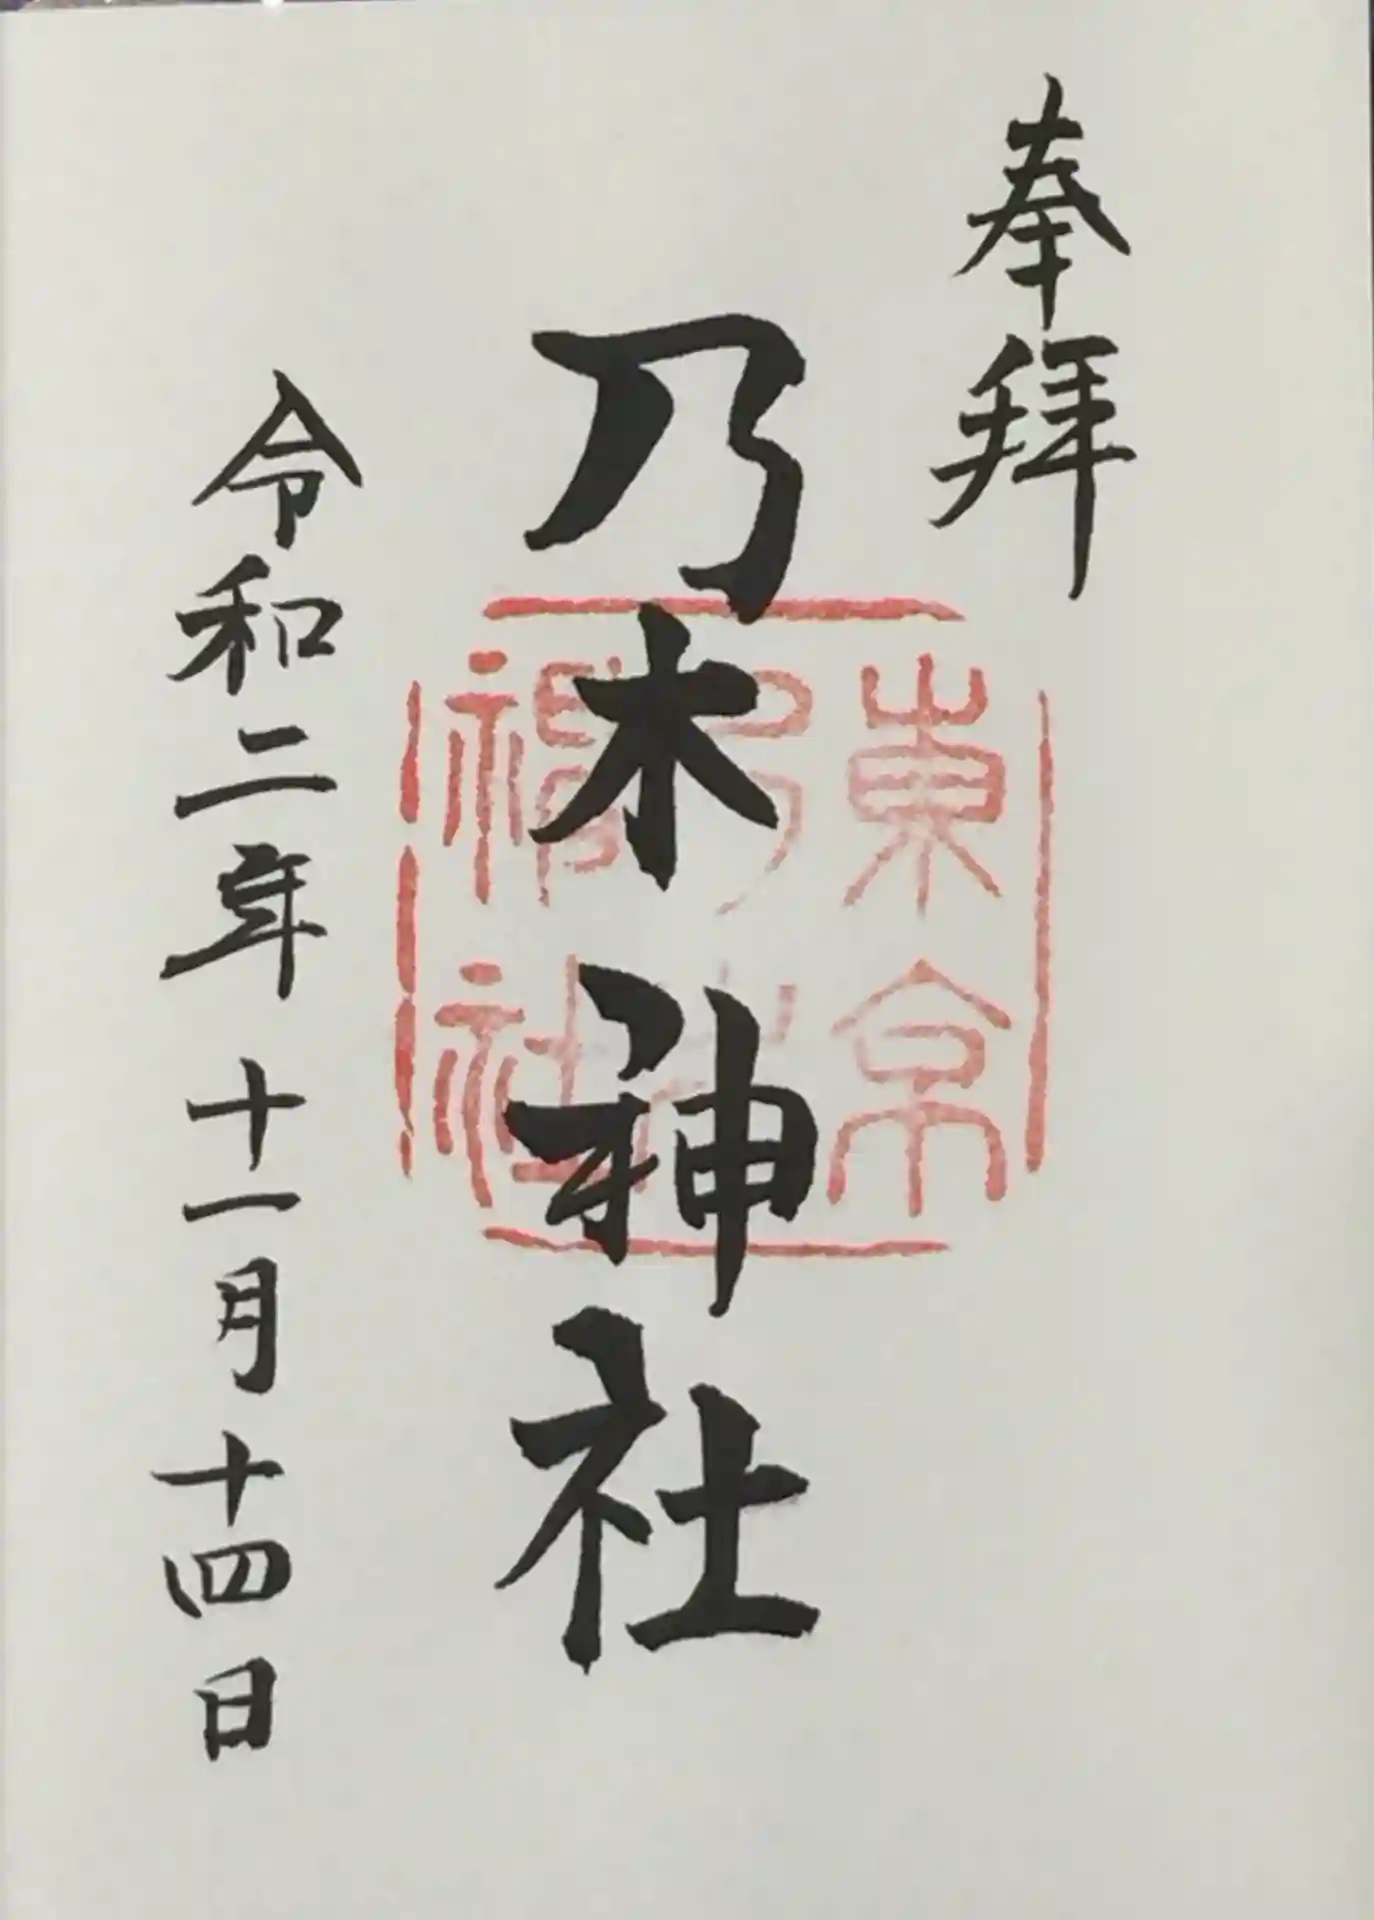 奉拝
乃木神社
東京
乃木
神社
令和二年十一月十四日